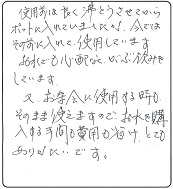 使用前は長く沸とうさせてから
ポットに入れていましたが、今では
その前に入れて使用しています
お水でも心配なく、いつも飲みを
しています。
又、お茶会に使用する時も
そのまま使えますのでお水を購
入する手間も費用も省け、とても
ありがたいです。